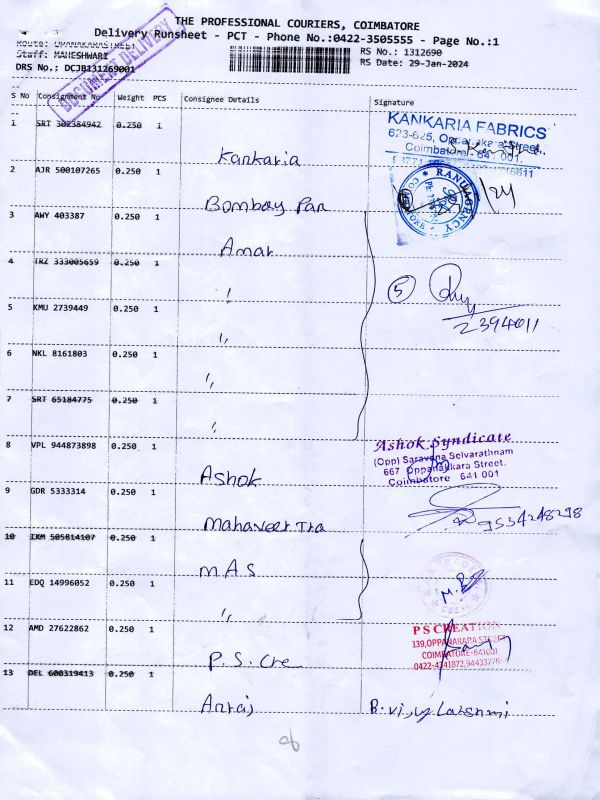 THE PROFESSIONAL COURIERS, COIMBATORE
Delivery Runsheet - PCT - Phone No.:0422-3505555 - Page No.:1
Route: OPANAKARASTREET
Staff: MAHESHWARI
DRS No.: DCJB131269001
RS No.: 1312690
RS Date: 29-Jan-2024
DOCUMENT DELIVERY
S No Consignment No Weight PCS Consignee Details Signature
1 SRT 302384942 0.250 1 Kankaria
KANKARIA FABRICS
623-625, Oppanakara Street,
Coimbatore - 641 001.
2 AJR 500107265 0.250 1 Bombay Pan
RANU AGENCY
3 AWY 403387 0.250 1 Amar
4 TRZ 333005659 0.250 1 "
5 KMU 2739449 0.250 1 "
5
2394011
6 NKL 8161803 0.250 1 "
7 SRT 65184775 0.250 1 "
8 VPL 944873898 0.250 1 Ashok
Ashok Syndicate
(Opp) Saravana Selvarathnam
667 Oppanakkara Street.
Coimbatore 641 001
9 GDR 5333314 0.250 1 Mahaveer Tra
9534248298
10 IXM 505814107 0.250 1 M A S
11 EDQ 14996052 0.250 1 "
12 AMD 27622862 0.250 1 P.S. Cre
P S CREATION
139, OPPANAKARA STREET
COIMBATORE-641001
13 DEL 600319413 0.250 1
B. Vijay Lakshmi